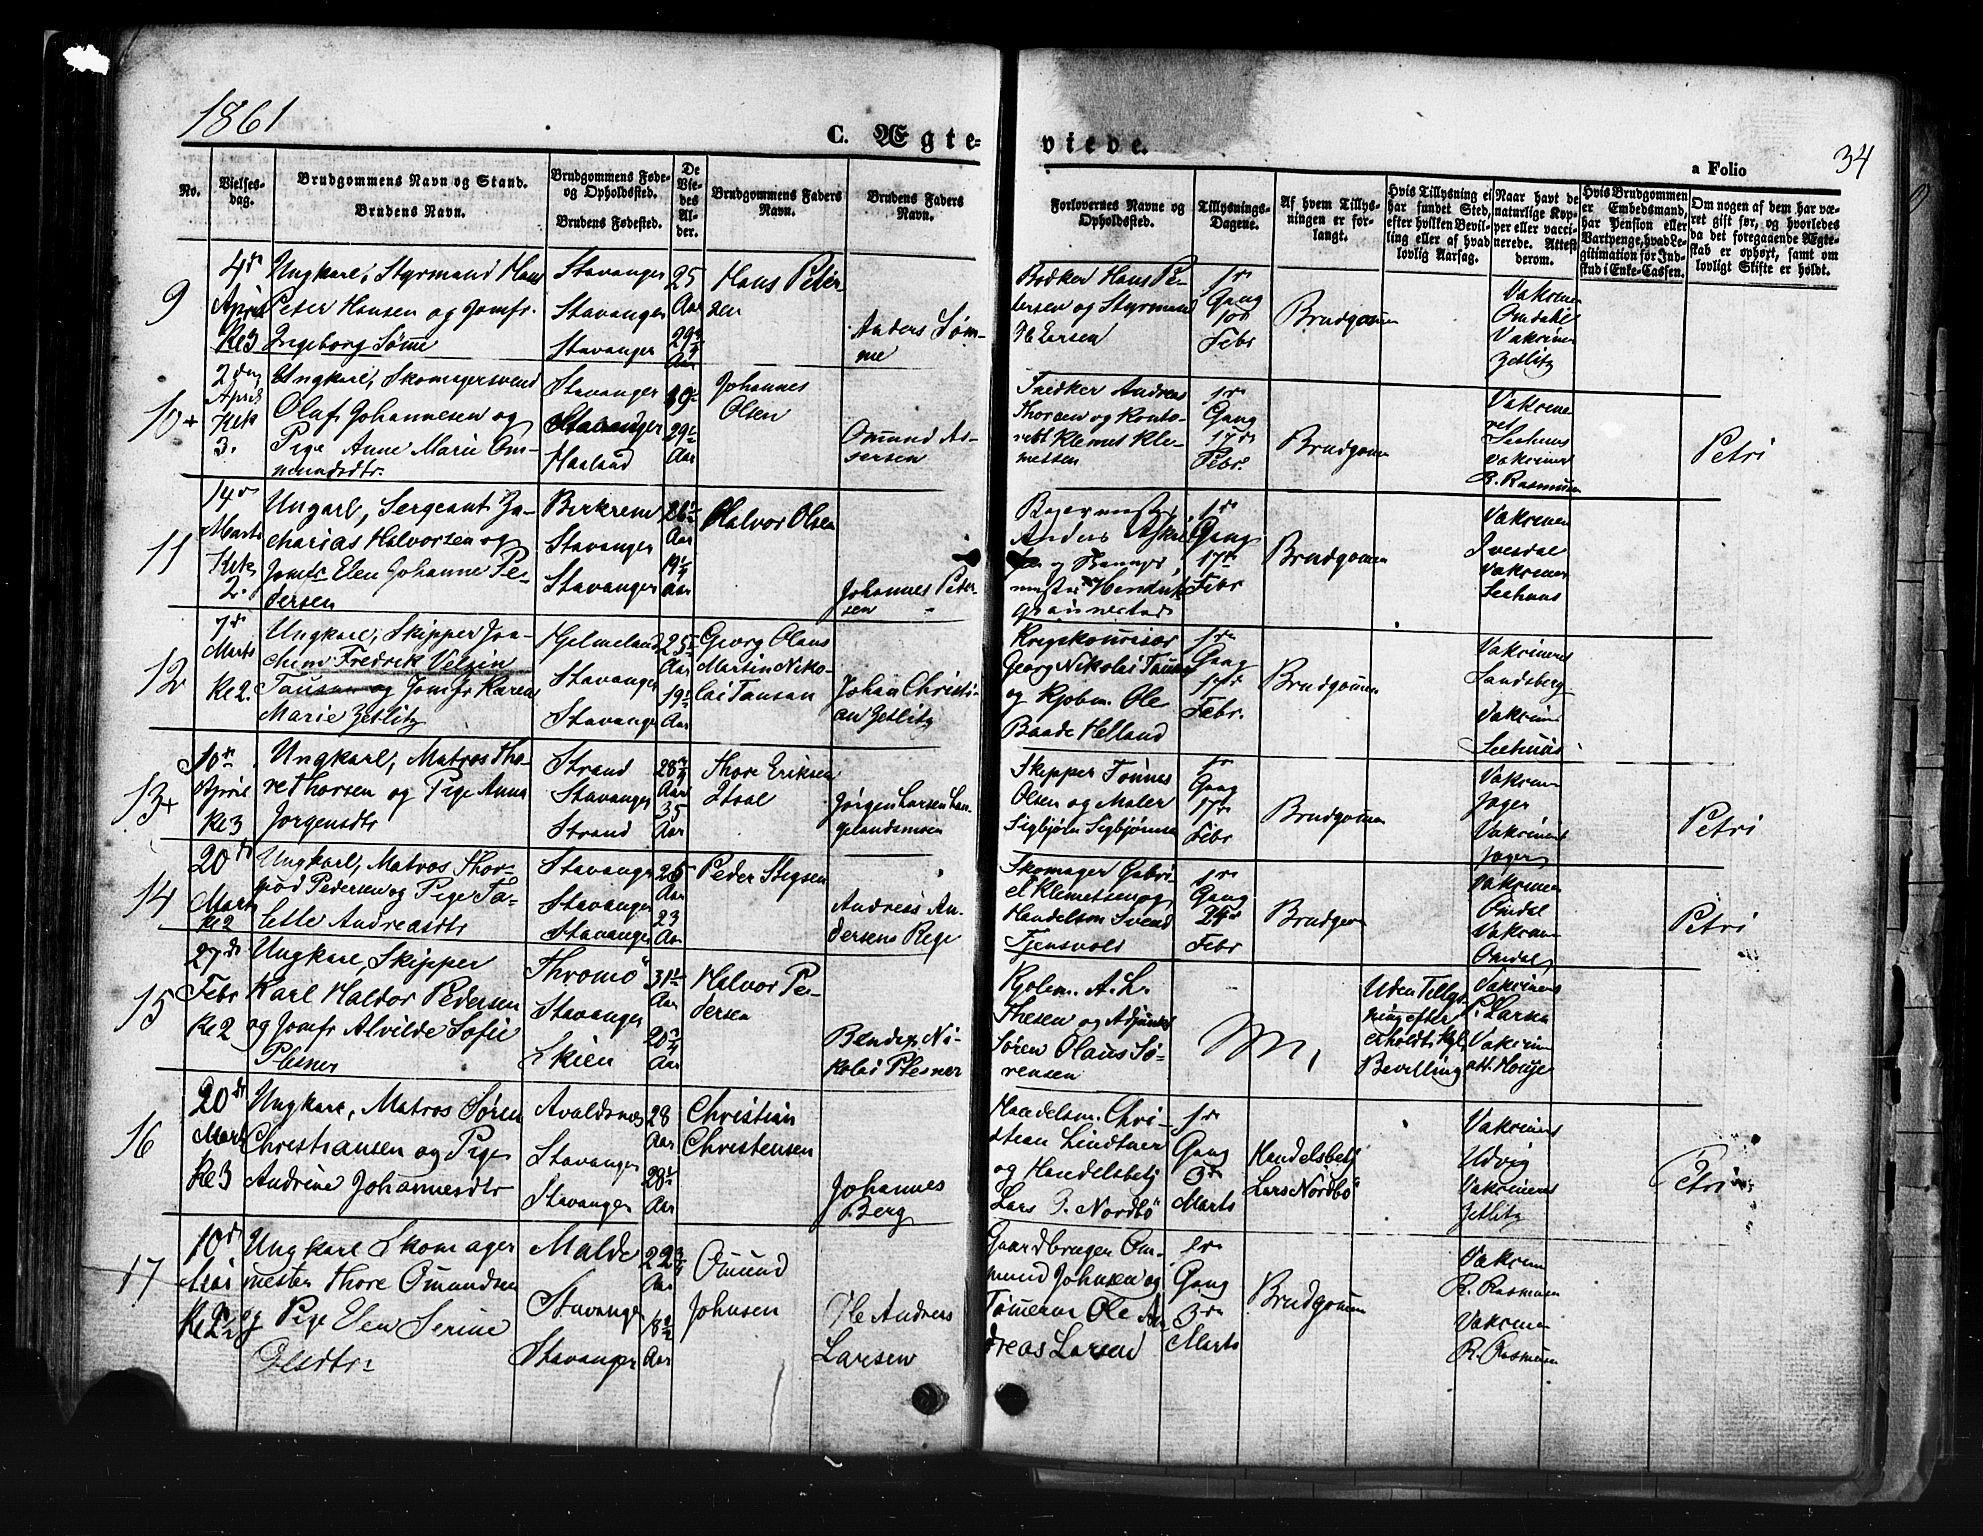 1861
C. Ægte-
viede.
34
a Folio
No.
Vielses-
dag.
Brudgommens Navn og Stand.
Brudens Navn.
Brudgommens Føde-
og Opholdssted.
Brudens Fødested.
De
Vie-
des
Al-
der.
Brudgommens Faders
Navn.
Brudens Faders
Navn.
Forlovernes Navne og
Opholdssted.
Tillysnings-
Dagene.
Af hvem Tillys-
ningen er for-
langt.
Hvis Tillysning ei
har fundet Sted,
efter hvilken Bevil-
ling eller af hvad
lovlig Aarsag.
Naar havt de
naturlige Kop-
per eller vacci-
nerede. Attest
derom.
Hvis Brudgommen
er Embedsmand,
har Pension eller
Vartpenge, hvad Le-
gitimation for Ind-
skud i Enke-Cassen.
Om nogen af dem har væ-
ret gift før, og hvorledes
da det foregaaende Ægte-
skab er ophørt, samt om
lovligt Skifte er holdt.
9
4de
April
Kl 3
Ungkarl, Styrmand Hans
Peter Hansen og Jomfr.
Ingeborg Sømme
Stavanger
Stavanger
Stavanger
25
Aar
29
Aar
Hans Peter
sen
Anders Søm-
me
Bødker Hans Pe-
tersen og Styrmand
1ste
Gang
10de
Febr
Brudgommen
Vakcinen
Omdahl
Vakcinen
Zetlitz
10+
2den
April
Kl
3.
Ungkarl, Skomagersvend
Oluf Johannesen og
Pige Anne Marie Om-
mundsdtr.
Stavanger
Stavanger
Haaland
29
Aar
Johannes
Olsen
Omund As-
sersen
Snedker Andreas
Thorsen og Konto-
rist Klemet Kle-
metsen
1ste
Gang
17de
Febr.
Brudgommen
Vakcine
Seehuus
Vakcinen
R. Rasmusen
Petri
11
14de
Marts
Kl
2.
Ungkarl, Sergeant Za-
charias Halvorsen og
Jomfr Elen Johanne Pe-
dersen
Birkrem
Stavanger
Stavanger
26½
Aar
19
Aar
Halvor Olsen
Johannes Peter-
sen
Anders
og
Henrik
Grannestad
1ste
Gang
17de
Febr
Brudgommen
Vakcinen
Ivesdal
Vakcinen
Seehuus
12
7de
Marts
Kl 2.
Ungkarl, Skipper Joa-
chim Fredrik Velzin
Tausan og Jomfr Karen
Marie Zetlitz
Hjelmeland
Stavanger
Stavanger
25
Aar
19
Aar
Georg Olaus
Martin Niko-
lai Tausan
Johan Christi-
an Zetlitz
Krigskomisær
Georg Nikolai Tausan
og Kjøbm. Ole
Baade Helland
1ste
Gang
17de
Febr.
Brudgommen
Vakcinens
Landsberg
Vakcinen
Seehuus
13+
10de
April
Kl 3
Ungkarl, Matros Tho-
re Thorsen og Pige Anna
Jørgensdtr
Strand
Stavanger
Strand
28
Aar
35
Aar
Thore Eriksen
Jørgen Larsen Lan-
gelandsmoen
Skipper Tønnes
Olsen og Maler
Sigbjørn Sigbjørnsen
1ste
Gang
17de
Febr
Brudgommen
Vakcinen
Jager
Vakcinen
Jager
Petri
14
20de
Marts
Kl 2
Ungkarl, Matros Thor-
mod Pedersen og Pige Ta-
lette Andreasdtr
Stavanger
Stavanger
Stavanger
25
Aar
23
Aar
Peder Stigsen
Andreas An-
dersens Rege
Skomager Gabri-
el Klemetsen og
Handelsm Svend
Tjensvold
1ste
Gang
24de
Febr
Brudgom
Vakcinen
Omdal
Vakcinen
Omdal
Petri
15
27de
Febr
Kl 2
Ungkarl, Skipper
Karl Haldor Pedersen
og Jomfr Alvilde Sofie
Plesner
Thromö
Stavanger
Skien
31½
Aar
20
Aar
Halvor Pe-
dersen
Bendix Ni-
kolai Plesner
Kjøbm. A. L.
Thesen og Adjunkt
Søren Olaus Sø-
rensen
Uden Tillys-
ning efter
erholdt Kgl.
Bevilling
Vakcinens
Larsen
Vakcinen
att. Houge
16
20de
Marts
Kl 3
Ungkarl, Matros Søren
Christiansen og Pige
Andrine Johannesdtr
Avaldsnes
Stavanger
Stavanger
28
Aar
28½
Aar
Christian
Christensen
Johannes
Berg
Handelsm. Chri-
stian Lindtner
og Handelsbetj
Lars P. Nordbö
1ste
Gang
3de
Marts
Handelsbetj
Lars Nordbö
Vakcinens
Udvig
Vakcinens
Zetlitz
Petri
17
10de
Mai
Kl 2½
Ungkarl Skomager
mester Thore Omundsen
og Pige Elen Serine
Olesdtr
Malde
Stavanger
Stavanger
22¾
Aar
18½
Aar
Omund
Johnsen
Ole Andreas
Larsen
Gaardbruger Om-
mund Johnsen og
Tømmerm Ole An
dreas Larsen
1ste
Gang
3de
Marts
Brudgommen
Vakcinen
R. Rasmusen
Vakcinen
R. Rasmusen